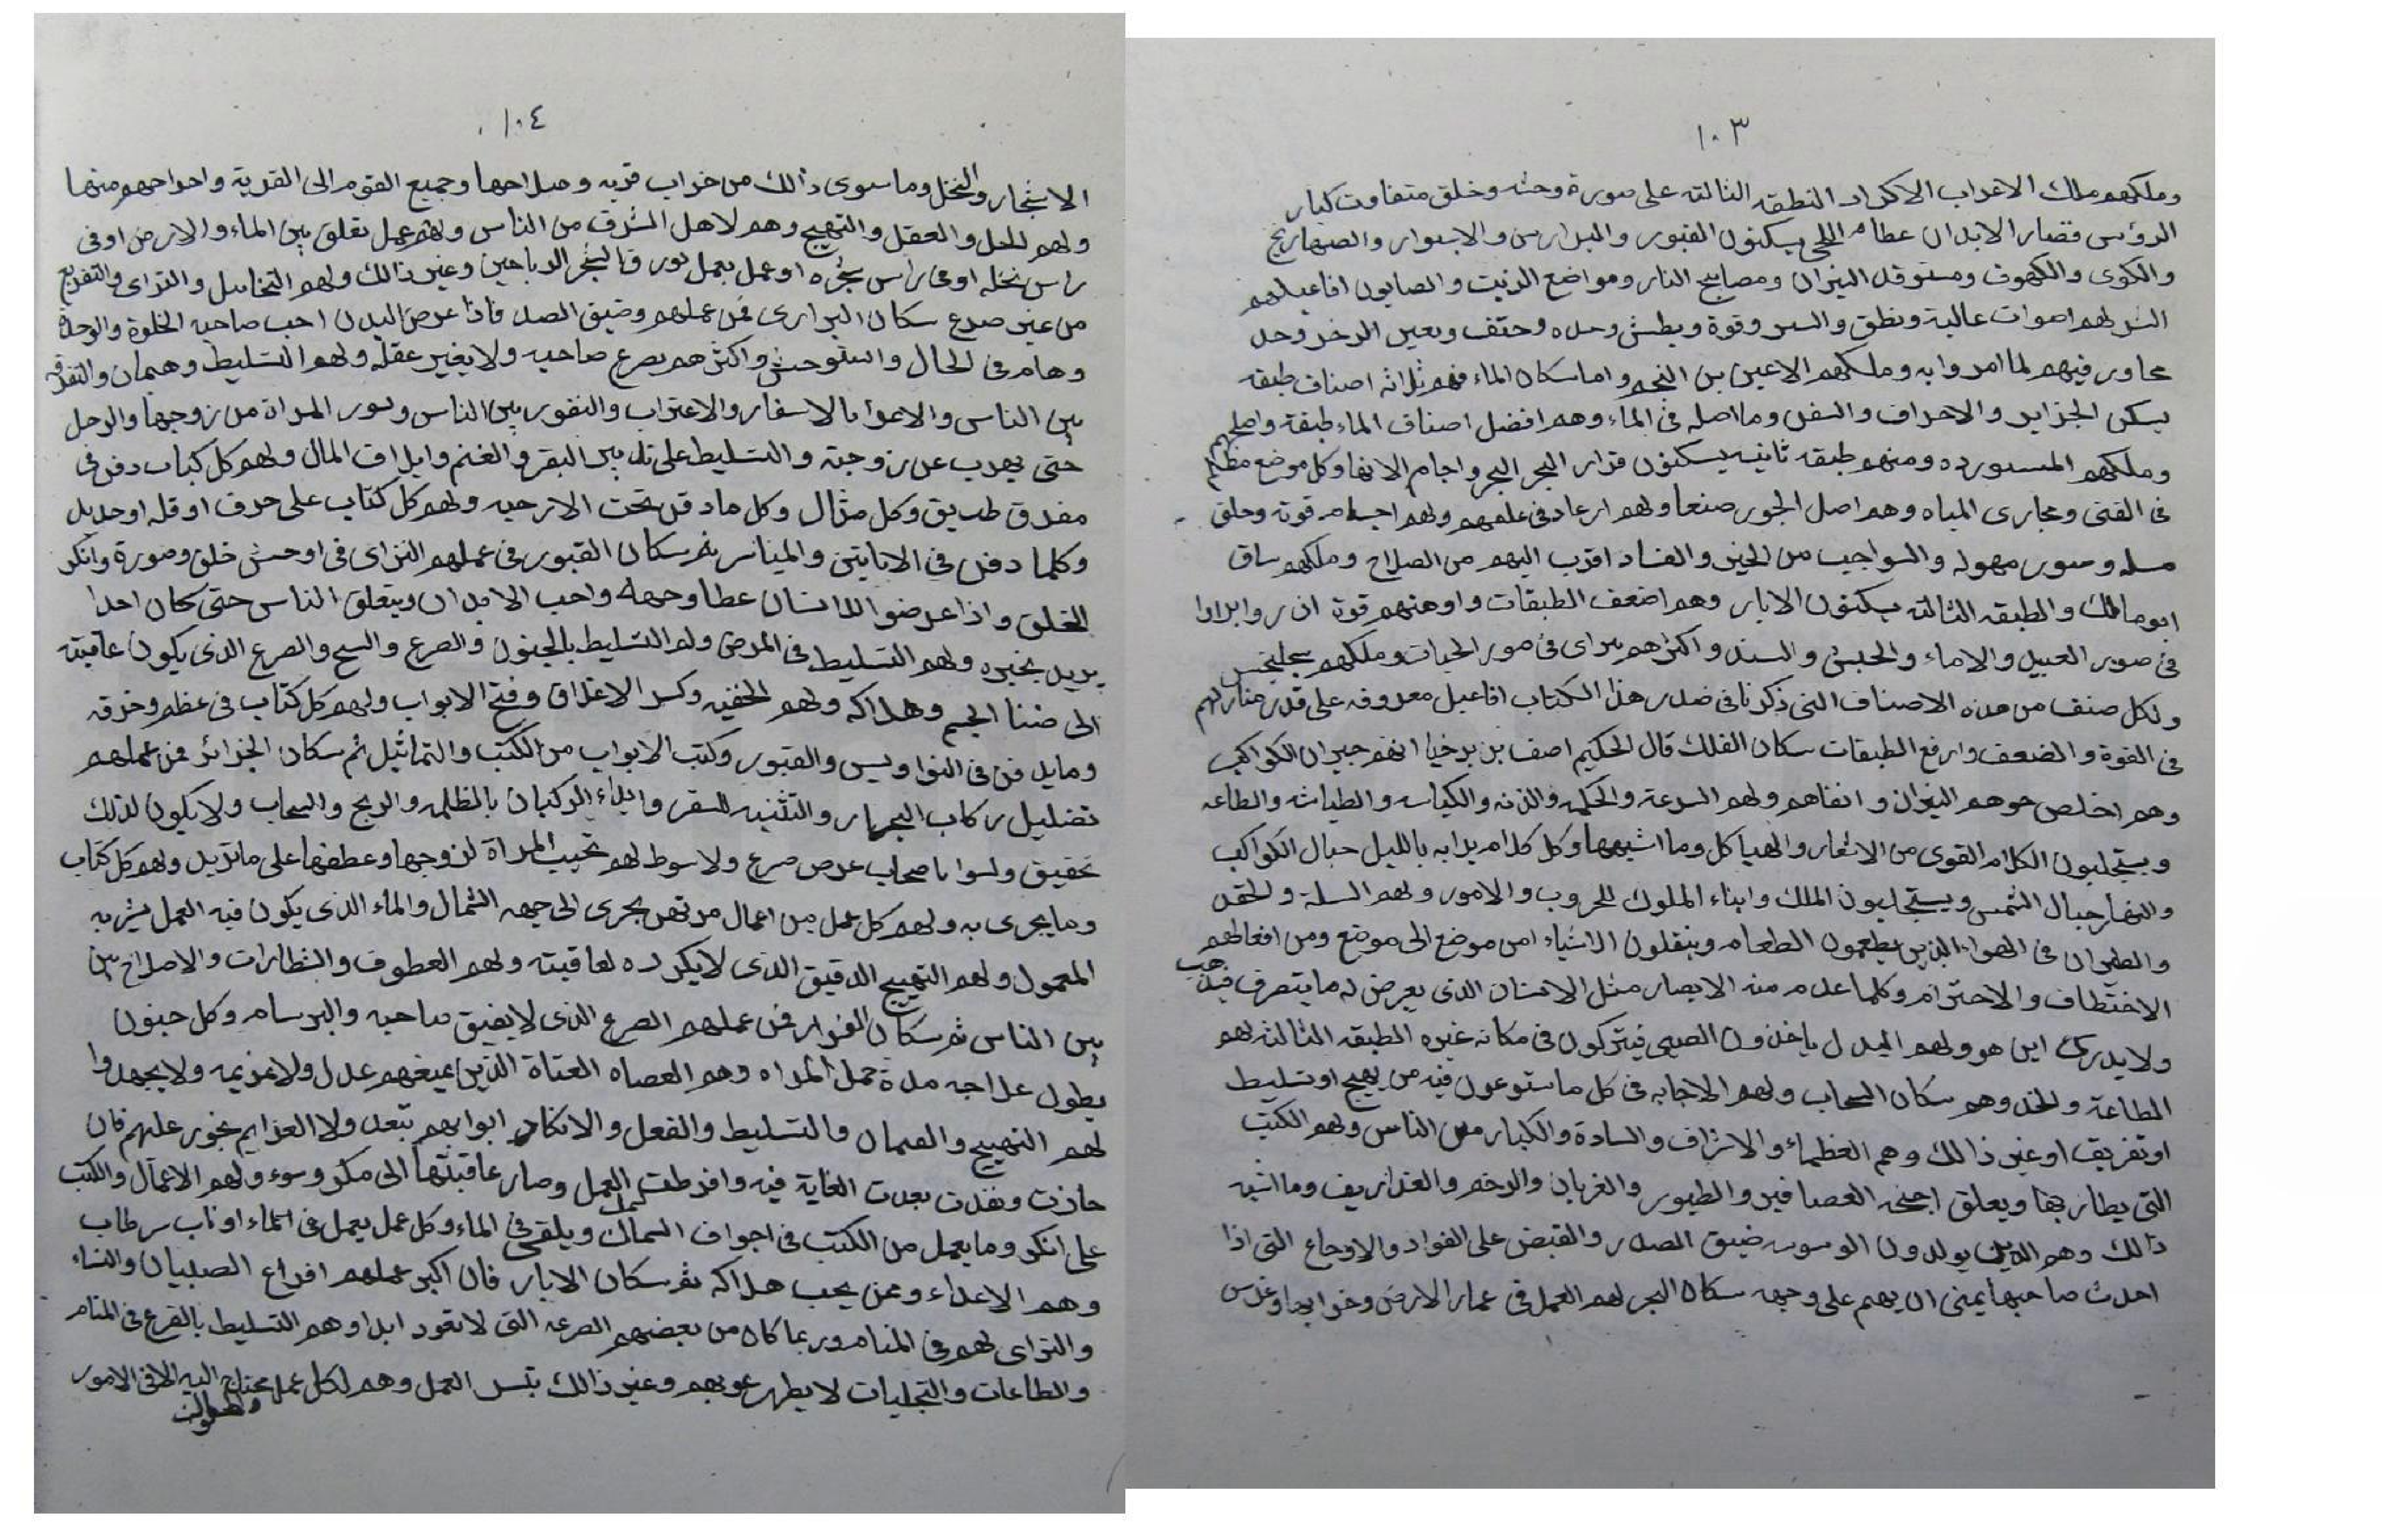 ١٠٣
وملكهم ملك الاعراب الاكراد النطقه الثالثه على صورة وحشه وخلق متفاوت كبار
الرؤس قصار الابدان عظام اللحى يسكنون القبور والمدارس والاسوار والصهاريج
والكوى والكهوف ومستوقد النيران ومصابيح النار ومواضع الزيت والصابون افاعيلهم
الشر لهم اصوات عالية ونطق والسر وقوة وبطش وحده
فيهم لما امروا به وملكهم الاعين بن النجم واما سكان الماء فهم ثلاثه اصناف طبقه
يسكن الجزاير والاحراف والسفن وما اصله فى الماء وهم افضل اصناف الماء طبقة
وملكهم ومنهم طبقه ثانيه يسكنون قرار البحر البحر واجام الانهار وكل موضع مظلم
فى القنى ومجارى المياه وهم اصل الجور صنعا ولهم ارعاد فى علمهم ولهم اجسام قوية وخلق
وصور مهوله من الخير والفساد اقرب اليهم من الصلاح وملكهم ساق
ابو مالك والطبقه الثالثه يسكنون الابار وهم اضعف الطبقات واوهنهم قوة
فى صور العبيد والاماء والحبش والسند واكثرهم يتراى فى صور الحيات وملكهم
ولكل صنف من هذه الاصناف التى ذكرنا فى صدر هذا الكتاب افاعيل معروفه على قدر منازلهم
فى القوة والضعف وارفع الطبقات سكان الفلك قال الحكيم اصف بن برخيا انهم جيران الكواكب
وهم اخلص جوهر النيران وانقاهم ولهم السرعة والحكمه والزنه والكياسه والطياشه والطاعه
ويستجلبون الكلام القوى من الاشعار والهياكل وما اشبهها وكل كلام يرابه بالليل حبال الكواكب
والنهار حبال الشمس ويستجلبون الملك وابناء الملوك للحروب والامور ولهم السلة والحقد
والطيران فى الهوا الذين يطعمون الطعام وينقلون الاشياء من موضع الى موضع ومن افعالهم
الاختطاف والاحترام وكلما عدم منه الابصار مثل الانسان الذى يعرض له ما يتصرف فيذهب
ولا يدرك اين هو ولهم البدل ياخذون الصبى فيتركون فى مكانه غيره الطبقه الثالثه لهم
الطاعة وهم سكان السحاب ولهم الاجابه فى كل ما ستوعون فيه من تهيج او تسليط
او تفريق او غير ذالك وهم العظماء والاشراف والسادة والكبار من الناس ولهم الكتب
التى يطار بها ويعلق اجنحة العصافير والطيور والغربان والرخم والغداريف وما اشبه
ذالك وهم الذين يولدون الوسوسه ضيق الصدر والقبض على الفواد والاوجاع التى اذا
احدث صاحبها يمنى ان يهم على وجهه سكان البحر لهم العمل فى عمار الارض وخرابها وغرس
١٠٤
الاشجار والنخل وما سوى ذالك من خراب قريه وصلاحها وجميع القوم الى القرية واخراجهم منها
ولهم للحل والعقل والتهيج وهم لاهل الشرف من الناس ولهم عمل تعلق بين الماء والارض او فى
راس نخله او فى راس شجره او عمل يعمل وغير ذالك ولهم التخاييل والتراى والتفزيع
من غير صرع سكان البرارى فمن عملهم وضيق الصدر فاذا عرض البدن احب صاحبه الخلوة والوحدة
وهام فى الحال واستوحش واكثرهم يصرع صاحبه ولا يغير عقله ولهم التسليط وهيمان والتفرقه
بين الناس والاعوام بالاسفار والاعتراب والنفور بين الناس ونور المراة من زوجها والرجل
حتى يهرب عن زوجته والتسليط على تدبير البقر والغنم وايلاف المال ولهم كل كتاب دفن فى
مفرق طريق وكل مثال وكل ما دفن تحت الارحيه ولهم كل كتاب على حرف او قله او حديد
وكلما دفن فى الاتاتين والمياسر ثم سكان القبور فى عملهم التراى فى اوحش خلق وصورة وانكر
الخلق واذا عرضوا للانسان عطا وجهه واحب الابدان ويتعلق الناس حتى كان احدا
يريد بخبره ولهم التسليط فى المرض وله التسليط بالجنون والصرع والسح والصرع الذى يكون عاقبته
الى ضنا الجسم وهلاكه ولهم الخفيه وكسر الاغلاق وفتح الابواب ولهم كل كتاب فى عظم وخرقه
وما يدفن فى النواويس والقبور وكتب الابواب من الكتب والتماثيل ثم سكان الجزائر فمن عملهم
تضليل ركاب البحر والتثنيه للسفر وايذاء الركبان بالظلمه والريح والسحاب ولا يكون لذلك
تحقيق وليسوا باصحاب عرض صرع ولا سوط لهم تحبيب المراة لزوجها وعطفها على ما تريد ولهم كل كتاب
وما يجرى به ولهم كل عمل من اعمال مر نهر يجرى الى جهه الشمال والماء الذى يكون فيه العمل يشربه
المعمول ولهم التهيج الدقيق الذى لا يكره لعاقبته ولهم العطوف والنظارات والاصلاح بين
بين الناس ثم سكان القرار فمن عملهم الصرع الذى لا يفيق صاحبه والبرسام وكل جنون
يطول علاجه مدة حمل المراه وهم العصاه العتاة الذين يمنعهم عدل ولا عزيمه ولا يجهدوا
لهم التهييج والعيمان والتسليط والفعل والانكار ولا العزايم تجوز عليهم فان
جازت ونفدت بعدت الغاية فيه وافرطت العمل وصار عاقبتها الى مكر وسوء ولهم الاعمال والكتب
على انكر وما يعمل من الكتب فى اجواف السماك ويلقى فى الماء وكل عمل يعمل فى الماء
وهم الاعداء وممن يحب هلاكه ثم سكان الابار فان اكبر عملهم افزاع الصبيان والنساء
والتراى لهم فى المنام وربما كان من بعضهم الصرعه التى لا تعود ابدا وهم التسليط بالفزع فى المنام
والطاعات والتجليات لا يظهر عيوبهم وغير ذالك بتسر العمل وهم لكل عمل محتاج اليه الا فى الامور